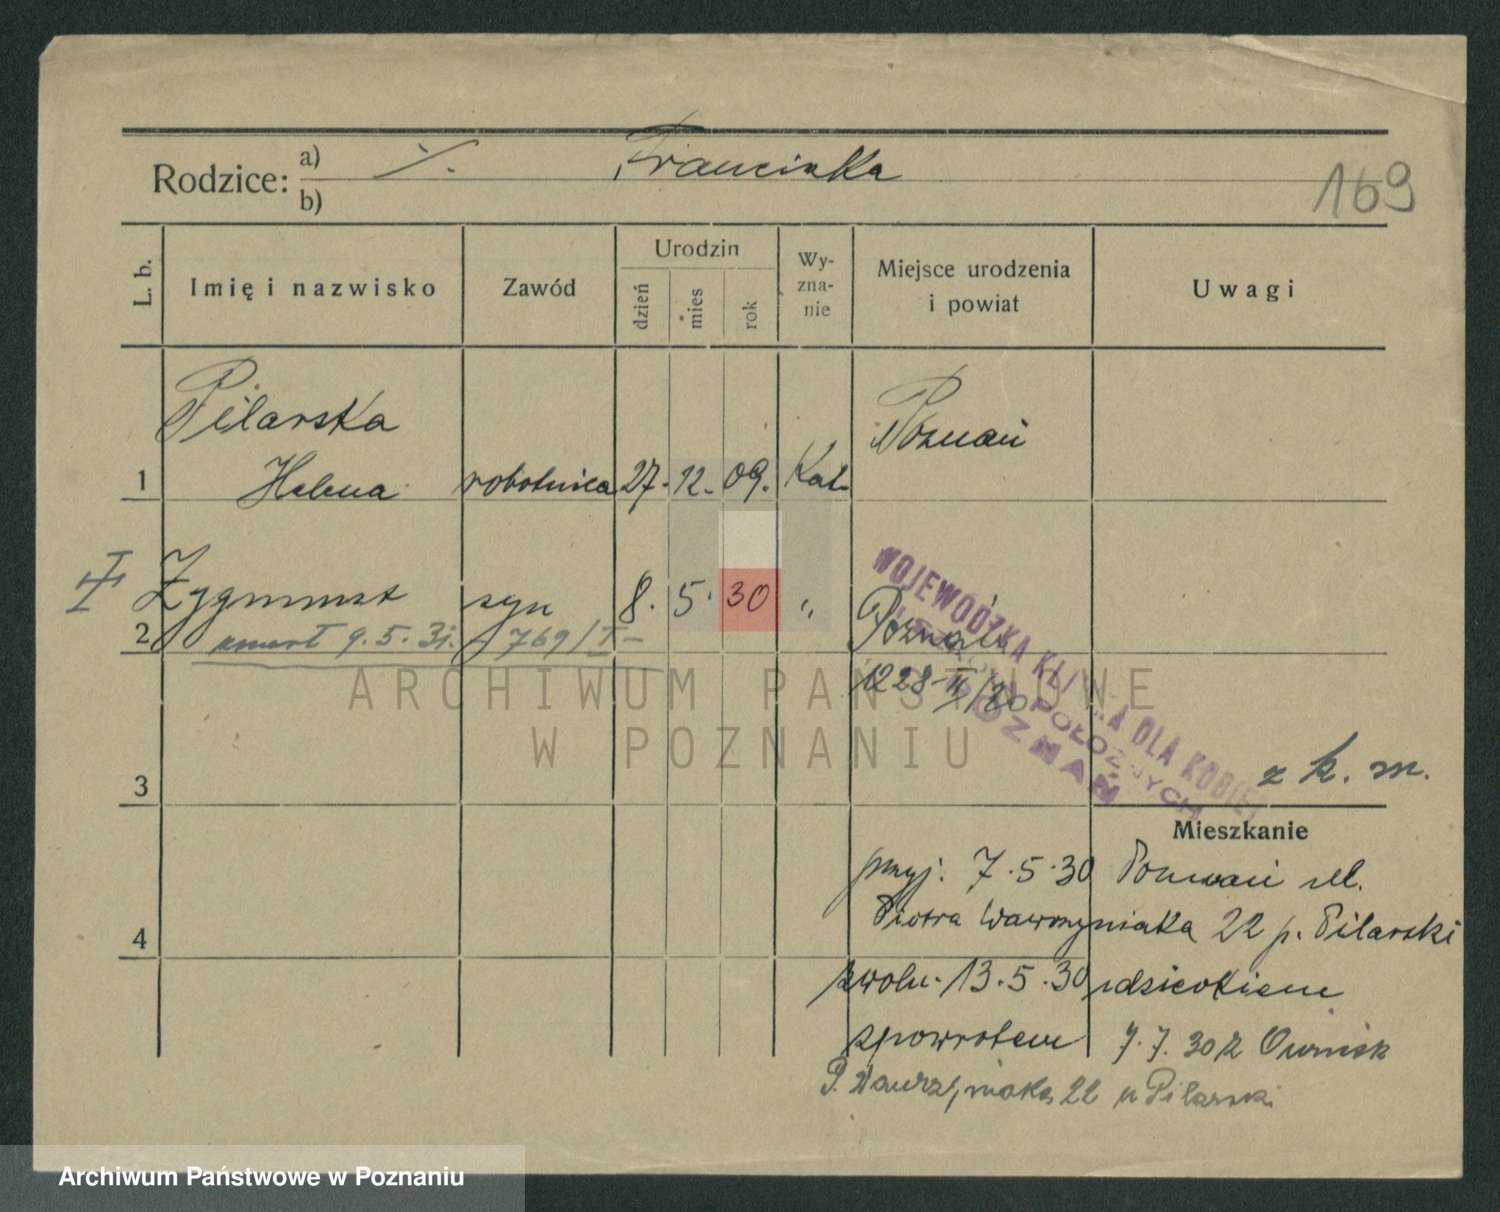 Rodzice: a) ·/. Franciszka
b)
169
L. b. Imię i nazwisko Zawód Urodzin dzień mies rok Wyznanie Miejsce urodzenia i powiat Uwagi
Pilarska Poznań
1 Helena robotnica 27. 12. 09. Kat.
Zygmunt syn 8. 5. 30 „ Poznań
2 zmarł 9. 5. 31. 769/I
1228 II/30
WOJEWÓDZKA KLINIKA DLA KOBIET
POŁOŻNYCH
POZNAŃ
3 z k. m.
Mieszkanie
przyj. 7.5.30 Poznań ul.
4 Piotra Wawrzyniaka 22 p. Pilarski
zwoln. 13.5.30 z dzieckiem
spowrotem 7.7.30 z Owińsk
P. Wawrzyniaka 22 u Pilarski
ARCHIWUM PAŃSTWOWE
W POZNANIU
Archiwum Państwowe w Poznaniu